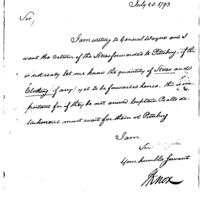 July 20 1793
Sir,
I am writing to General Wayne and I
want the return of the Stores forwarded to Pittsburg, if the
is not ready let me know the quantity of Stores and
Clothing if any, yet to be forwarded hence. this is im-
portant for if they be not arrived Captain
must wait for them at Pittsburg
I am
Sir
Your humble Servant
Knox